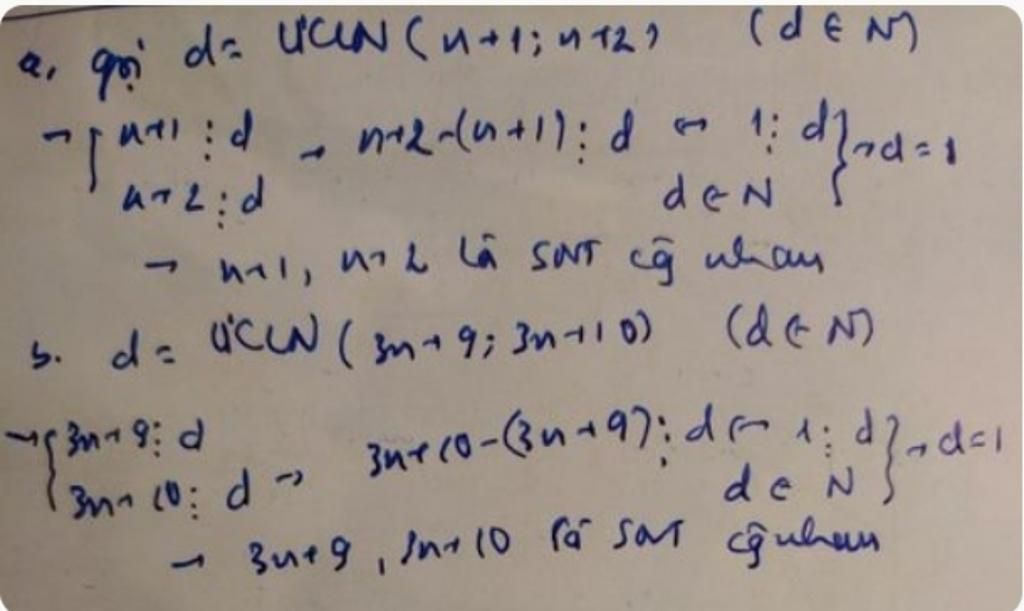 a, gọi d = ƯCLN(n+1; n+2) (d ∈ N)
→ { n+1 ⋮ d → n+2-(n+1) ⋮ d ↔ 1 ⋮ d } → d = 1
n+2 ⋮ d d ∈ N
→ n+1, n+2 là SNT cg nhau
b. d = ƯCLN(3n+9; 3n+10) (d ∈ N)
→ { 3n+9 ⋮ d 3n+10-(3n+9) ⋮ d ↔ 1 ⋮ d } → d=1
3n+10 ⋮ d → d ∈ N
→ 3n+9, 3n+10 là SNT cg nhau